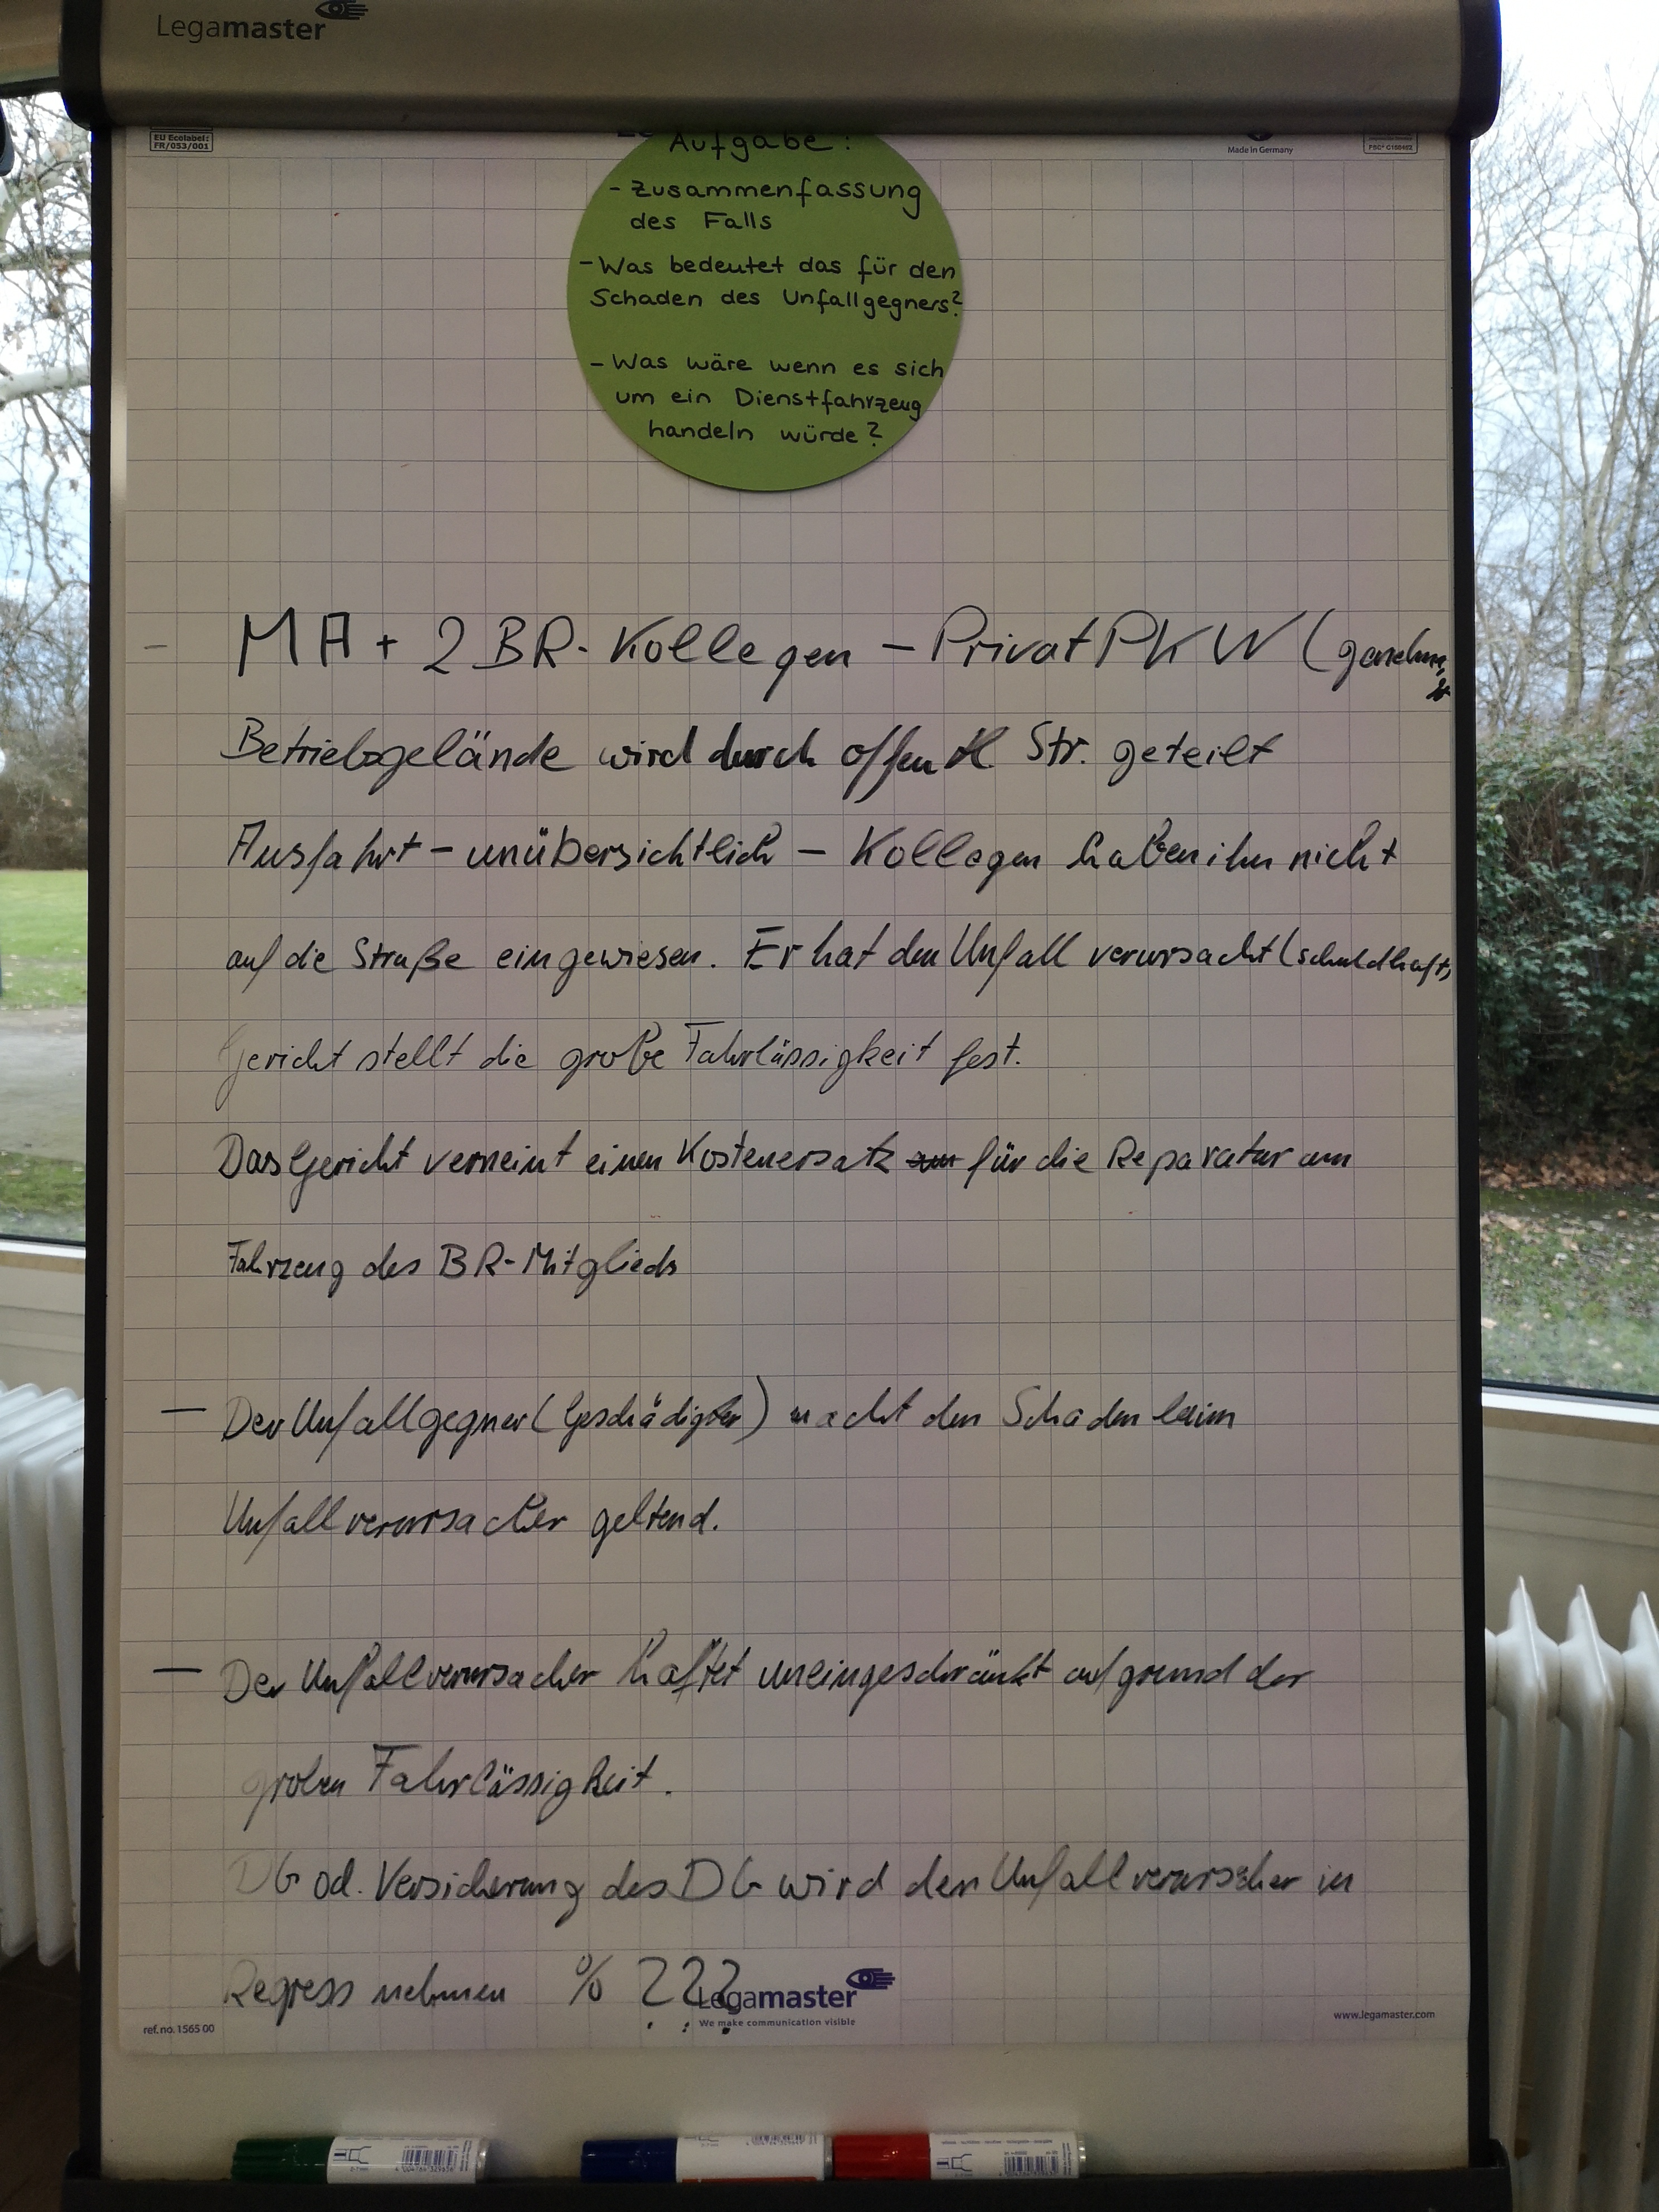 Legamaster
EU Ecolabel:
FR/053/001
Made in Germany
Aufgabe:
- Zusammenfassung
des Falls
- Was bedeutet das für den
Schaden des Unfallgegners?
- Was wäre wenn es sich
um ein Dienstfahrzeug
handeln würde?
- MA + 2 BR-Kollegen - Privat PKW (
Betriebsgelände wird durch öffentl Str. geteilt
Ausfahrt - unübersichtlich - Kollegen haben ihn nicht
auf die Straße eingewiesen. Er hat den Unfall verursacht (schuldhaft)
Gericht stellt die grobe Fahrlässigkeit fest.
Das Gericht verneint einen Kostenersatz für die Reparatur am
Fahrzeug des BR-Mitglieds
- Der Unfallgegner (Geschädigter) macht den Schaden beim
Unfallverursacher geltend.
- Der Unfallverursacher haftet uneingeschränkt aufgrund der
groben Fahrlässigkeit.
DG od. Versicherung des DG wird den Unfallverursacher in
Regress nehmen % ???
Legamaster
We make communication visible
ref. no. 1565 00
www.legamaster.com